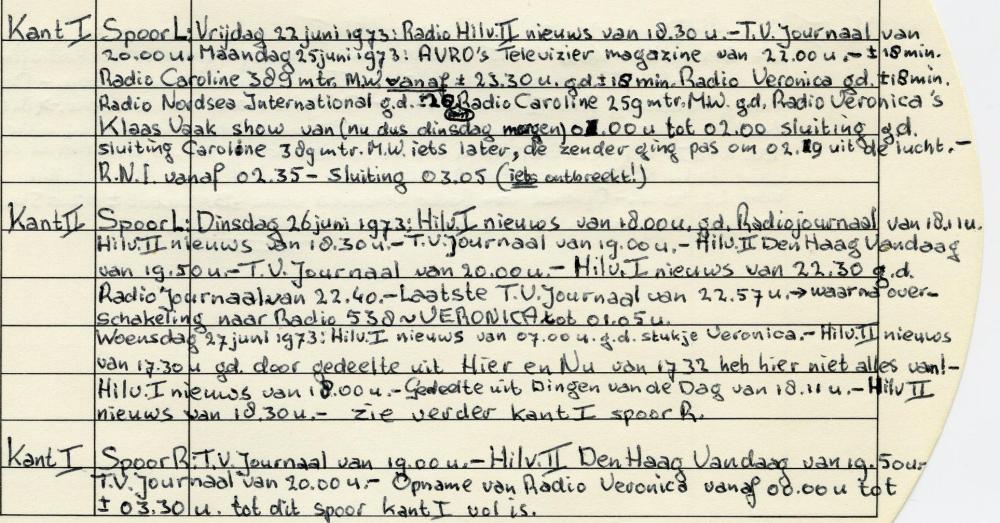 Kant I Spoor L: Vrijdag 22 juni 1973: Radio Hilv. II nieuws van 18.30 u. - T.V. Journaal van
20.00 u. Maandag 25 juni 1973: AVRO's Televizier magazine van 22.00 u. - ± 18 min.
Radio Caroline 389 mtr. M.W. vanaf ± 23.30 u. g.d. ± 18 min. Radio Veronica g.d. ± 18 min.
Radio Nordsea International g.d. Radio Caroline 259 mtr. M.W. g.d. Radio Veronica's
Klaas Vaak show van (nu dus dinsdag morgen) 01.00 u tot 02.00 sluiting g.d.
sluiting Caroline 389 mtr. M.W. iets later, de zender ging pas om 02.19 uit de lucht. -
R.N.I. vanaf 02.35 - Sluiting 03.05 (iets ontbreekt!)
Kant II Spoor L: Dinsdag 26 juni 1973: Hilv. I nieuws van 18.00 u. g.d. Radiojournaal van 18.11 u.
Hilv. II nieuws van 18.30 u. - T.V. Journaal van 19.00 u. - Hilv. II Den Haag Vandaag
van 19.50 u. - T.V. Journaal van 20.00 u. - Hilv. I nieuws van 22.30 g.d.
Radio Journaal van 22.40. - Laatste T.V. Journaal van 22.57 u. → waarna over-
schakeling naar Radio 538 ~ VERONICA tot 01.05 u.
Woensdag 27 juni 1973: Hilv. I nieuws van 07.00 u. g.d. stukje Veronica. - Hilv. II nieuws
van 17.30 u g.d. door gedeelte uit Hier en Nu van 17 32 heb hier niet alles van! -
Hilv. I nieuws van 18.00 u. - Gedeelte uit Dingen van de Dag van 18.11 u. - Hilv II
nieuws van 18.30 u. - zie verder kant I spoor R.
Kant I Spoor R: T.V. Journaal van 19.00 u. - Hilv. II Den Haag Vandaag van 19.50 u. -
T.V. Journaal van 20.00 u. - Opname van Radio Veronica vanaf 00.00 u tot
± 03.30 u. tot dit spoor kant I vol is.